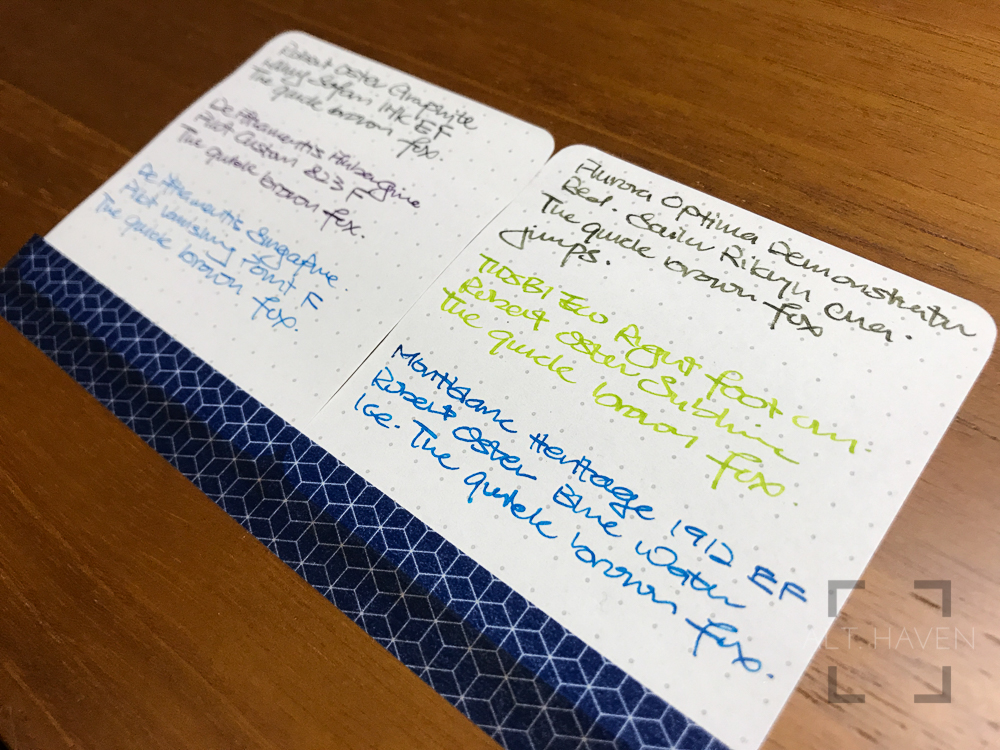 Robert Oster Graphite
Lamy Safari Ink EF
The quick brown fox.
De Atramentis Aubergine
Pilot Custom 823 F
The quick brown fox.
De Atramentis Singapore.
Pilot Vanishing Point F
The quick
brown fox.
Aurora Optima Demonstrator
Red. Sailor Rikyu Cha.
The quick brown fox
jumps.
TWSBI Eco Right foot on.
Robert Oster Sublime
The quick brown fox
Montblanc Heritage 1912 EF
Robert Oster Blue Water
Ice. The quick brown fox.
ALT. HAVEN